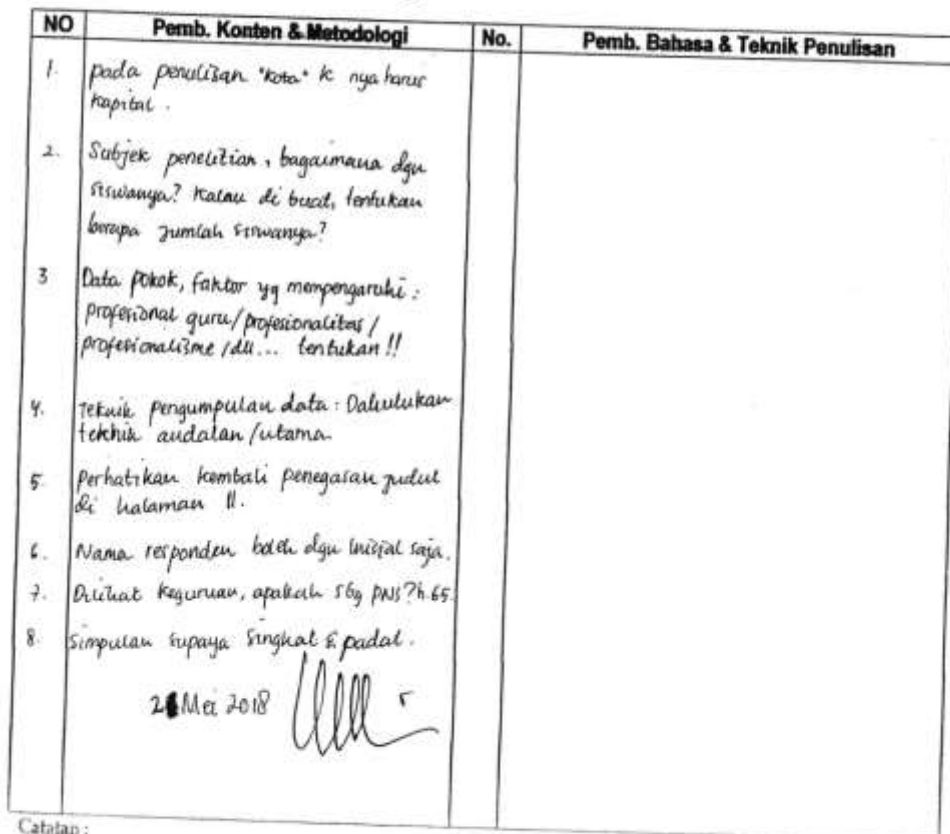 NO Pemb. Konten & Metodologi No. Pemb. Bahasa & Teknik Penulisan
1. pada penulisan "kota" k nya harus
kapital.
2. Subjek penelitian, bagaimana dgn
siswanya? Kalau di buat, tentukan
berapa jumlah siswanya?
3 Data pokok, faktor yg mempengaruhi:
profesional guru/profesionalitas/
profesionalisme/dll... tentukan!!
4. Teknik pengumpulan data: Dahulukan
tekhik andalan/utama.
5. Perhatikan kembali penegasan judul
di halaman 11.
6. Nama responden boleh dgn inisial saja.
7. Dilihat keguruan, apakah sbg PNS? h.65.
8. Simpulan supaya singkat & padat.
Mei 2018
Catatan: